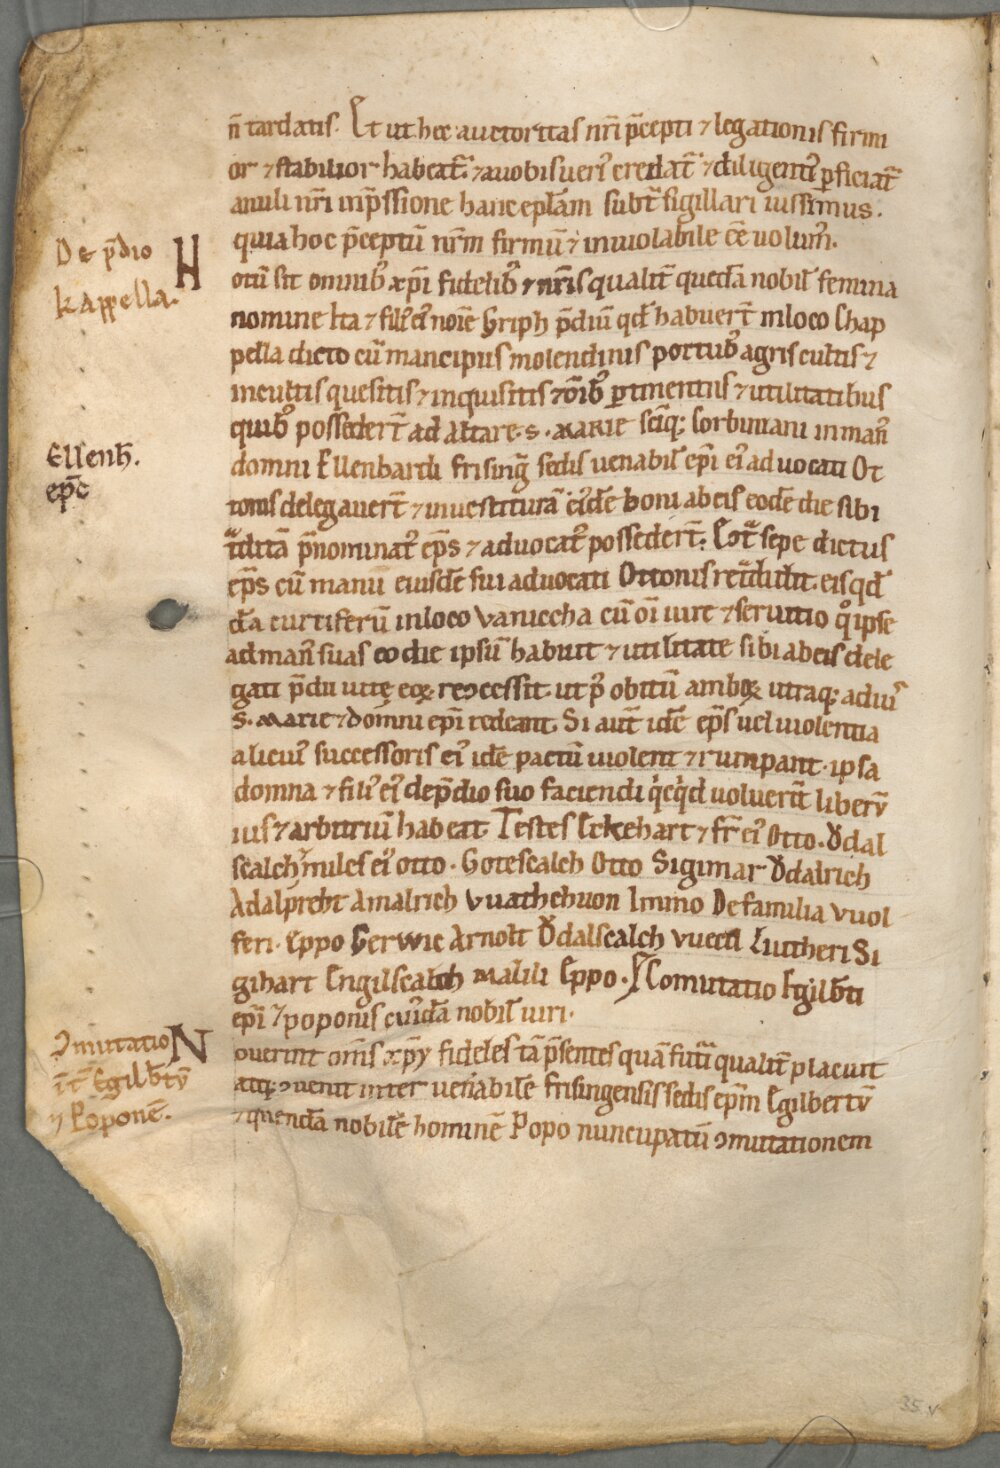 n̄ tardatis. Et ut hec auctoritas nr̄i p̄cepti ⁊ legationis firmi
or ⁊ stabilior habeat᷑. ⁊ a uobis uerı᷑ credat᷑ ⁊ diligent᷑ ꝑficiat᷑
anuli nr̄i inp̄ssione hanc epl̄am subt᷑ sigillari iussimus.
quia hoc p̄ceptū nr̄m firmū ⁊ inuiolabile eē uolum᷑.
De p̄dio
kappella.
N
otū sit omnib᷑ xp̄i fidelib᷑ ⁊ nr̄is qualit᷑ quedā nobil᷑ femina
nomine Ita ⁊ fili᷑ ei᷑ noīe Griph p̄diū qd̄ habuer̄t in loco Chap
pella dicto cū mancipiis molendinis portub᷑ agris cultis ⁊
incultis quesitis ⁊ inquisitis ⁊ oīb᷑ ꝑtinentiis ⁊ utilitatibus
quib᷑ posseder̄t ad altare. s. MARIE scīq; Corbiniani in man᷑
Ellenh̄.
ep̄c
domni Ellenhardi frising᷑ sedis uenabil᷑ ep̄i ei᷑ aduocati Ot
tonis delegauer̄t ⁊ inuestiturā ei᷑dē boni ab eis eodē die sibi
t᷑ditā p̄nominat᷑ ep̄s ⁊ aduocat᷑ posseder̄t. Cōt᷑ sepe dictus
ep̄s cū manu eiusdē sui aduocati Ottonis reddidit eis qd̄
dā curtiferū in loco Vaniccha cū oī iure ⁊ seruitio q̊ ipse
ad man᷑ suas eo die ipsū habuit ⁊ utilitate sibi ab eis dele
gati p̄dii uitę eoꝝ recessit. ut p᷑ obitū amboꝝ utraq; ad ius
S. MARIE ⁊ domni ep̄i redeant. Si aut᷑ idē ep̄s uel uiolentia
alicui᷑ successoris ei᷑ idē pactū uiolent ⁊ rumpant. ipsa
domna ⁊ fili᷑ ei᷑ de p̄dio suo faciendi qͥcqͥd uoluer̄t liberū
ius ⁊ arbitriū habeat. Testes Eckehart ⁊ fr̄ ei᷑ Otto. Ǒdal
scalch ⁊ miles ei᷑ Otto. Gotescalch Otto Sigimar Ǒdalrich
Adalpreht Amalrich Vuathehuon Immo De familia Vuol
feri. Eppo Gerwic Arnolt Ǒdalscalch Vuecil Liutheri Si
gihart Engilscalch Malili Eppo. Comutatio Egilb̄ti
ep̄i ⁊ poponis cui᷑dā nobil᷑ uiri.
ꝯmutatio
īt᷑ Egilb̄tū
⁊ Poponē.
N
ouerint om̄s xp̄i fideles tā p̄sentes quā fut᷑i qualit᷑ placuit
atq; ꝯuenit inter uenabilē frisingensis sedis ep̄m Egilbertū
⁊ quendā nobilē hominē Popo nuncupatū ꝯmutationem
35 v